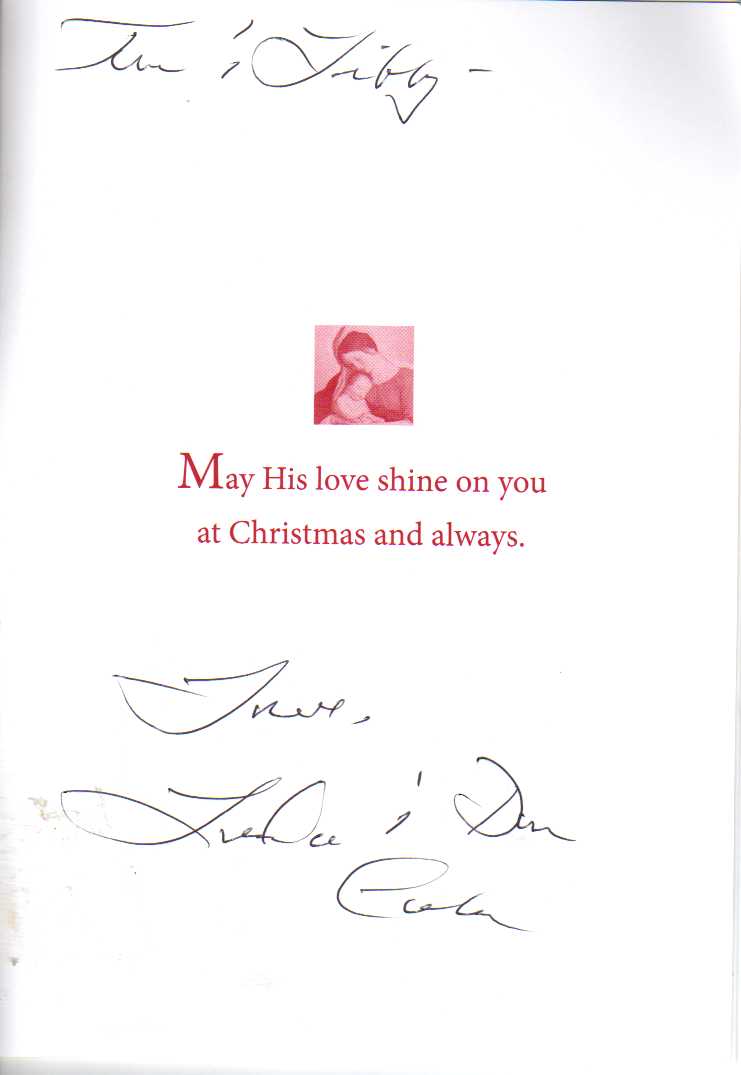 & Libby –
May His love shine on you
at Christmas and always.
Love,
& Don